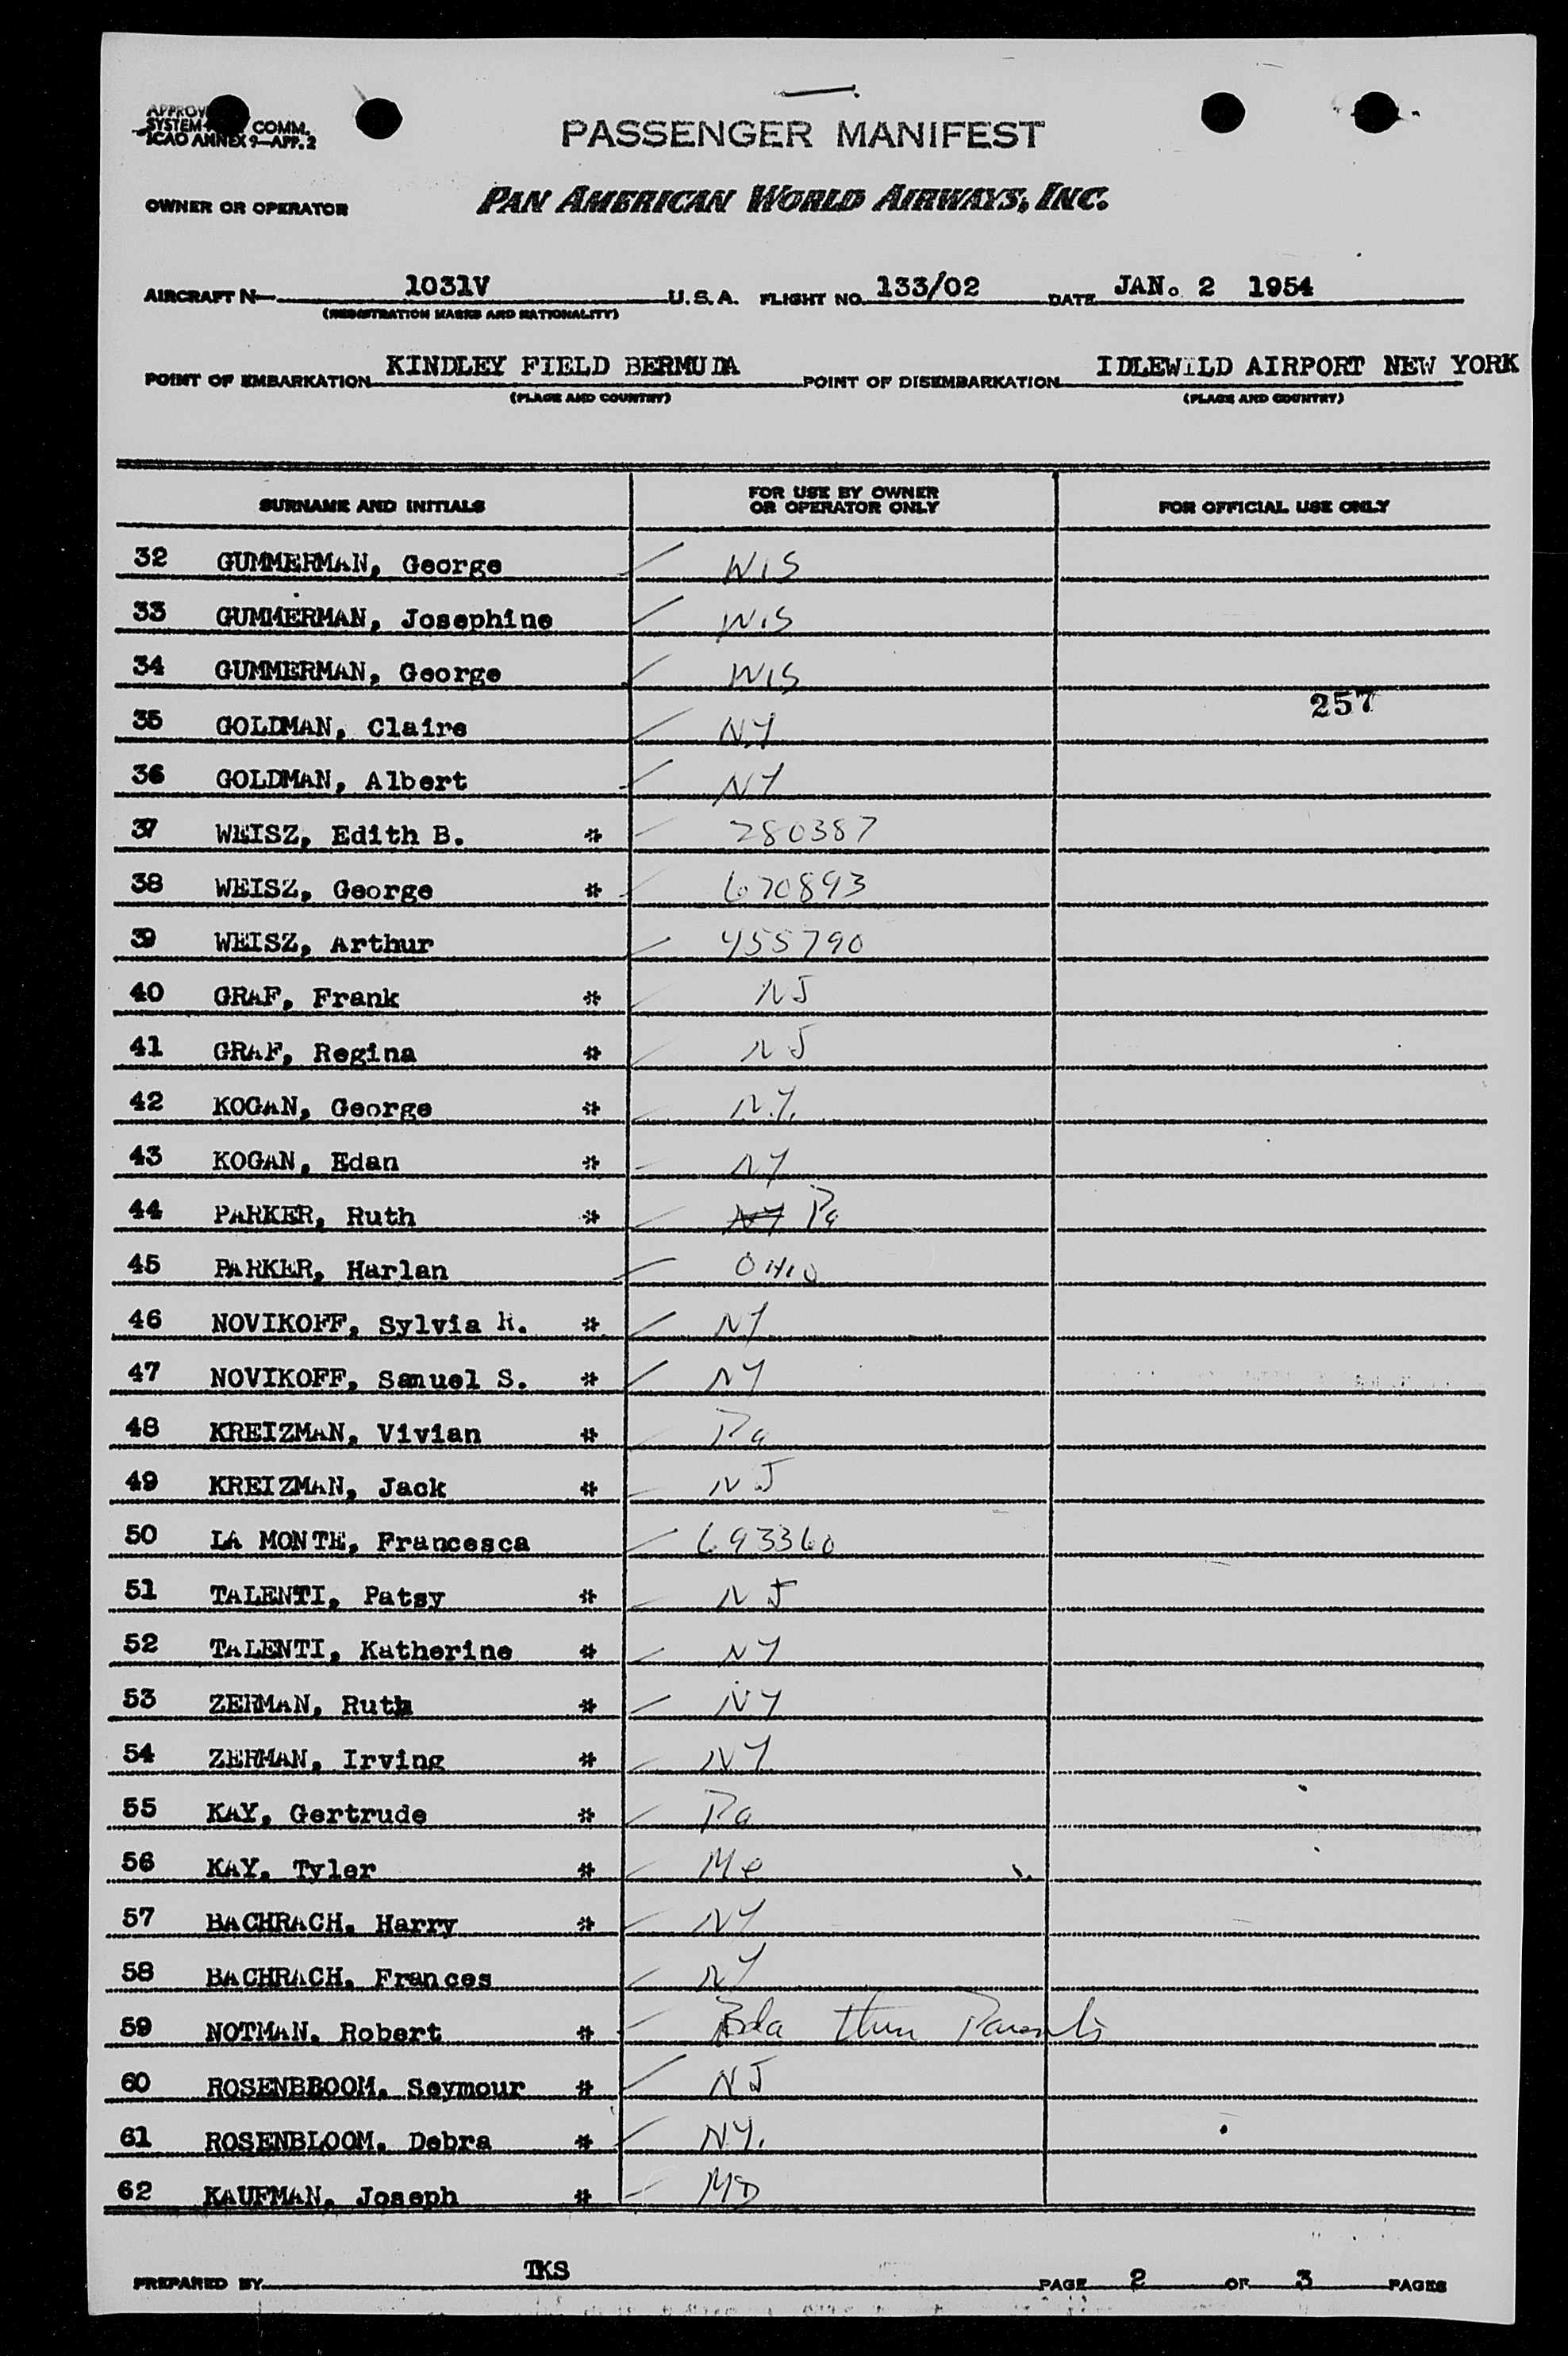 APPROV
SYSTEM COMM.
ICAO ANNEX 9—APP. 2
PASSENGER MANIFEST
OWNER OR OPERATOR PAN AMERICAN WORLD AIRWAYS, INC.
AIRCRAFT N— 1031V U.S.A. FLIGHT NO. 133/02 DATE JAN. 2 1954
(REGISTRATION MARKS AND NATIONALITY)
POINT OF EMBARKATION KINDLEY FIELD BERMUDA POINT OF DISEMBARKATION IDLEWILD AIRPORT NEW YORK
(PLACE AND COUNTRY) (PLACE AND COUNTRY)
SURNAME AND INITIALS FOR USE BY OWNER OR OPERATOR ONLY FOR OFFICIAL USE ONLY
32 GUMMERMAN, George WIS
33 GUMMERMAN, Josephine WIS
34 GUMMERMAN, George WIS
257
35 GOLDMAN, Claire NY
36 GOLDMAN, Albert NY
37 WEISZ, Edith B. * 280387
38 WEISZ, George * 670893
39 WEISZ, Arthur 455790
40 GRAF, Frank * NJ
41 GRAF, Regina * NJ
42 KOGAN, George * N.Y.
43 KOGAN, Edan * NY
44 PARKER, Ruth * NY Pa
45 PARKER, Harlan OHIO
46 NOVIKOFF, Sylvia R. * NY
47 NOVIKOFF, Samuel S. * NY
48 KREIZMAN, Vivian * Pa
49 KREIZMAN, Jack * NJ
50 LA MONTE, Francesca 693360
51 TALENTI, Patsy * NJ
52 TALENTI, Katherine * NY
53 ZERMAN, Ruth * NY
54 ZERMAN, Irving * NY
55 KAY, Gertrude * Pa
56 KAY, Tyler * Me
57 BACHRACH, Harry * NY
58 BACHRACH, Frances NY
59 NOTMAN, Robert * Bda thru Parents
60 ROSENBBOOM, Seymour * NJ
61 ROSENBLOOM, Debra * NY.
62 KAUFMAN, Joseph * MD
PREPARED BY TKS PAGE 2 OF 3 PAGES